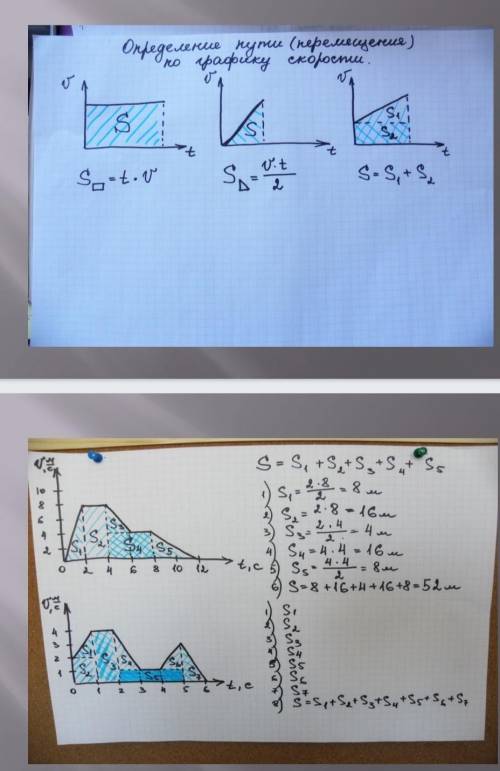 Определение пути (перемещения)
по графику скорости.
v
S
t
v
S
t
v
S₁
S₂
t
S□ = t · v
S△ = v·t/2
S = S₁ + S₂
v, м/с
10
8
6
4
2
S₁
S₂
S₃
S₄
S₅
0 2 4 6 8 10 12 t, с
S = S₁ + S₂ + S₃ + S₄ + S₅
1) S₁ = 2·8/2 = 8 м
2) S₂ = 2·8 = 16 м
3) S₃ = 2·4/2 = 4 м
4) S₄ = 4·4 = 16 м
5) S₅ = 4·4/2 = 8 м
6) S = 8 + 16 + 4 + 16 + 8 = 52 м
v, м/с
4
3
2
1
S₁
S₂
S₃
S₄
S₅
S₆
S₇
0 1 2 3 4 5 6 t, с
1) S₁
2) S₂
3) S₃
S₄
S₅
S₆
S₇
S = S₁ + S₂ + S₃ + S₄ + S₅ + S₆ + S₇